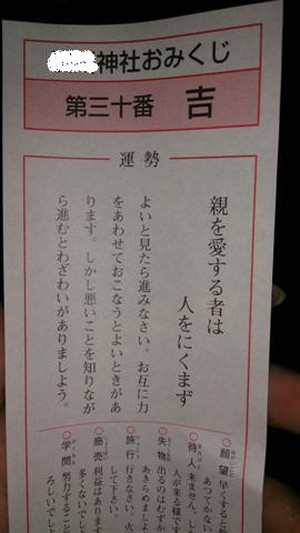 神社おみくじ
第三十番 吉
運勢
親を愛する者は
人をにくまず
よいと見たら進みなさい。お互に力
をあわせておこなうとよいときがあ
ります。しかし悪いことを知りなが
ら進むとわざわいがありましょう。
○願望 早くすると
あつてかない
○待人 来ません。し
人が来る様です
○失物 出るのはむずか
あきらめましょ
○旅行 行きなさい。火
して下さい。
○商売 利益はあります
多くないでし
○学問 努力すること
ろしいでしょ